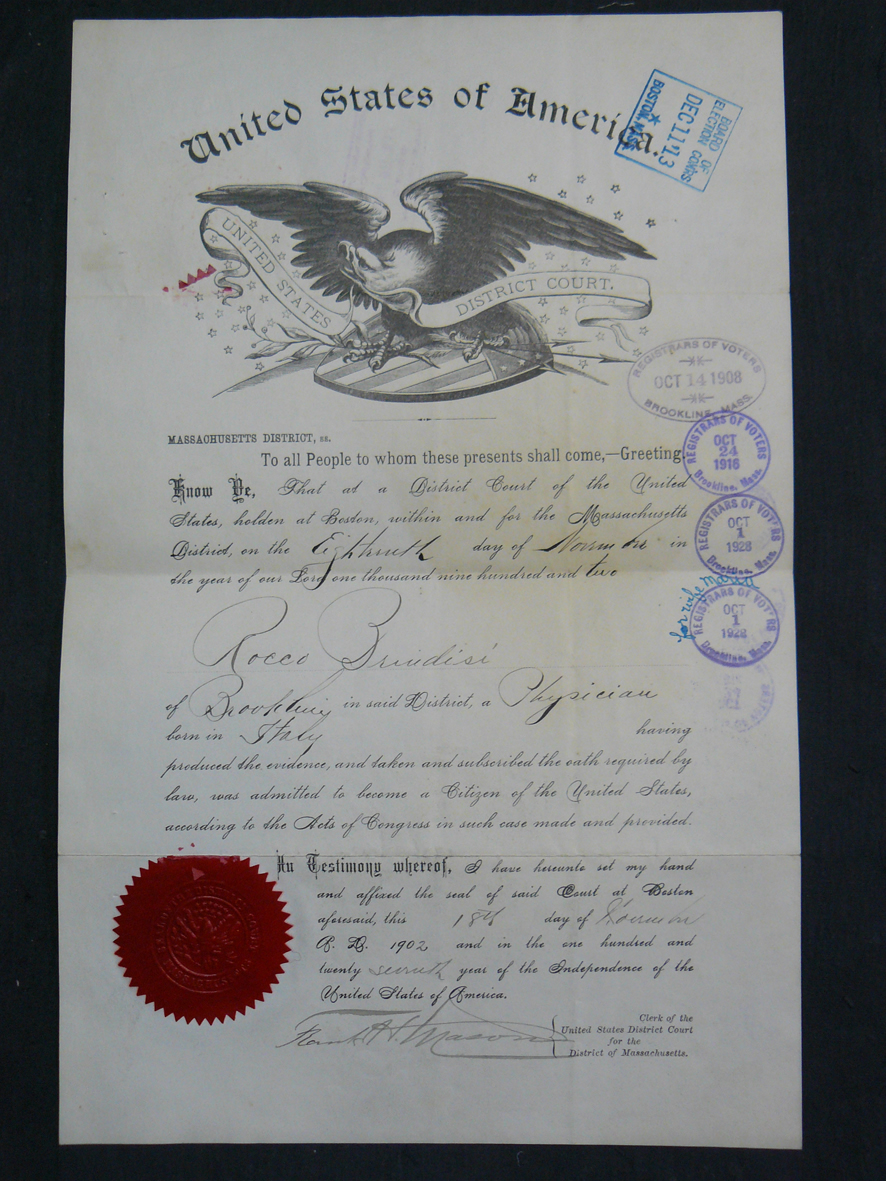 United States of America.
BOARD OF
ELECTION COM'RS
DEC 11 '13
BOSTON, MASS.
UNITED STATES
DISTRICT COURT.
REGISTRARS OF VOTERS
OCT 14 1908
BROOKLINE, MASS.
MASSACHUSETTS DISTRICT, ss.
To all People to whom these presents shall come,—Greeting.
REGISTRARS OF VOTERS
OCT
24
1916
Brookline, Mass.
Know Ye, That at a District Court of the United
States, holden at Boston, within and for the Massachusetts
District, on the Eighteenth day of November in
the year of our Lord one thousand nine hundred and two
REGISTRARS OF VOTERS
OCT
1
1928
Brookline, Mass.
for wife
REGISTRARS OF VOTERS
OCT
1
1928
Brookline, Mass.
Rocco Brindisi
of Brookline in said District, a Physician
born in Italy having
produced the evidence, and taken and subscribed the oath required by
law, was admitted to become a Citizen of the United States,
according to the Acts of Congress in such case made and provided.
In Testimony whereof, I have hereunto set my hand
and affixed the seal of said Court at Boston
aforesaid, this 18th day of November
A. D. 1902 and in the one hundred and
twenty seventh year of the Independence of the
United States of America.
Frank H. Mason
Clerk of the
United States District Court
for the
District of Massachusetts.